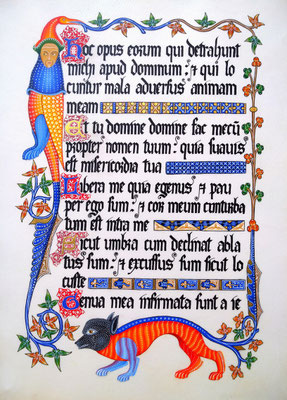 Hoc opus eorum qui detrahunt
michi apud dominum: & qui lo
cuntur mala aduersus animam
meam
Et tu domine domine fac mecū
propter nomen tuum: quia suauis
est misericordia tua
Libera me quia egenus & pau
per ego sum: & cor meum conturba
tum est intra me
Sicut umbra cum declinat abla
tus sum: & excussus sum sicut lo
custe
Genua mea infirmata sunt a ie